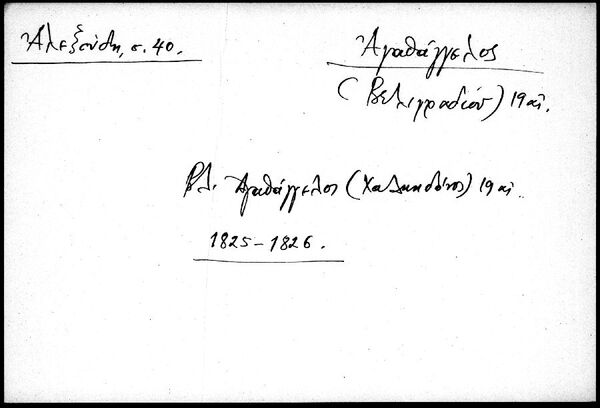 Ἀλεξούδη, σ. 40.
Ἀγαθάγγελος
(Βελιγραδίου) 19 αἰ.
Βλ. Ἀγαθάγγελος (Χαλκηδόνος) 19 αἰ.
1825-1826.